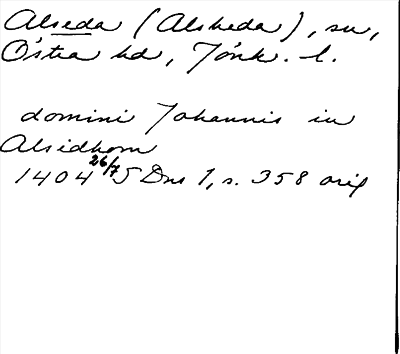 Alseda (Alsheda), sn,
Östra hd, Jönk. l.
domini Johannis in
Alsidhom
1404 26/7 SDns 1, s. 358 orig